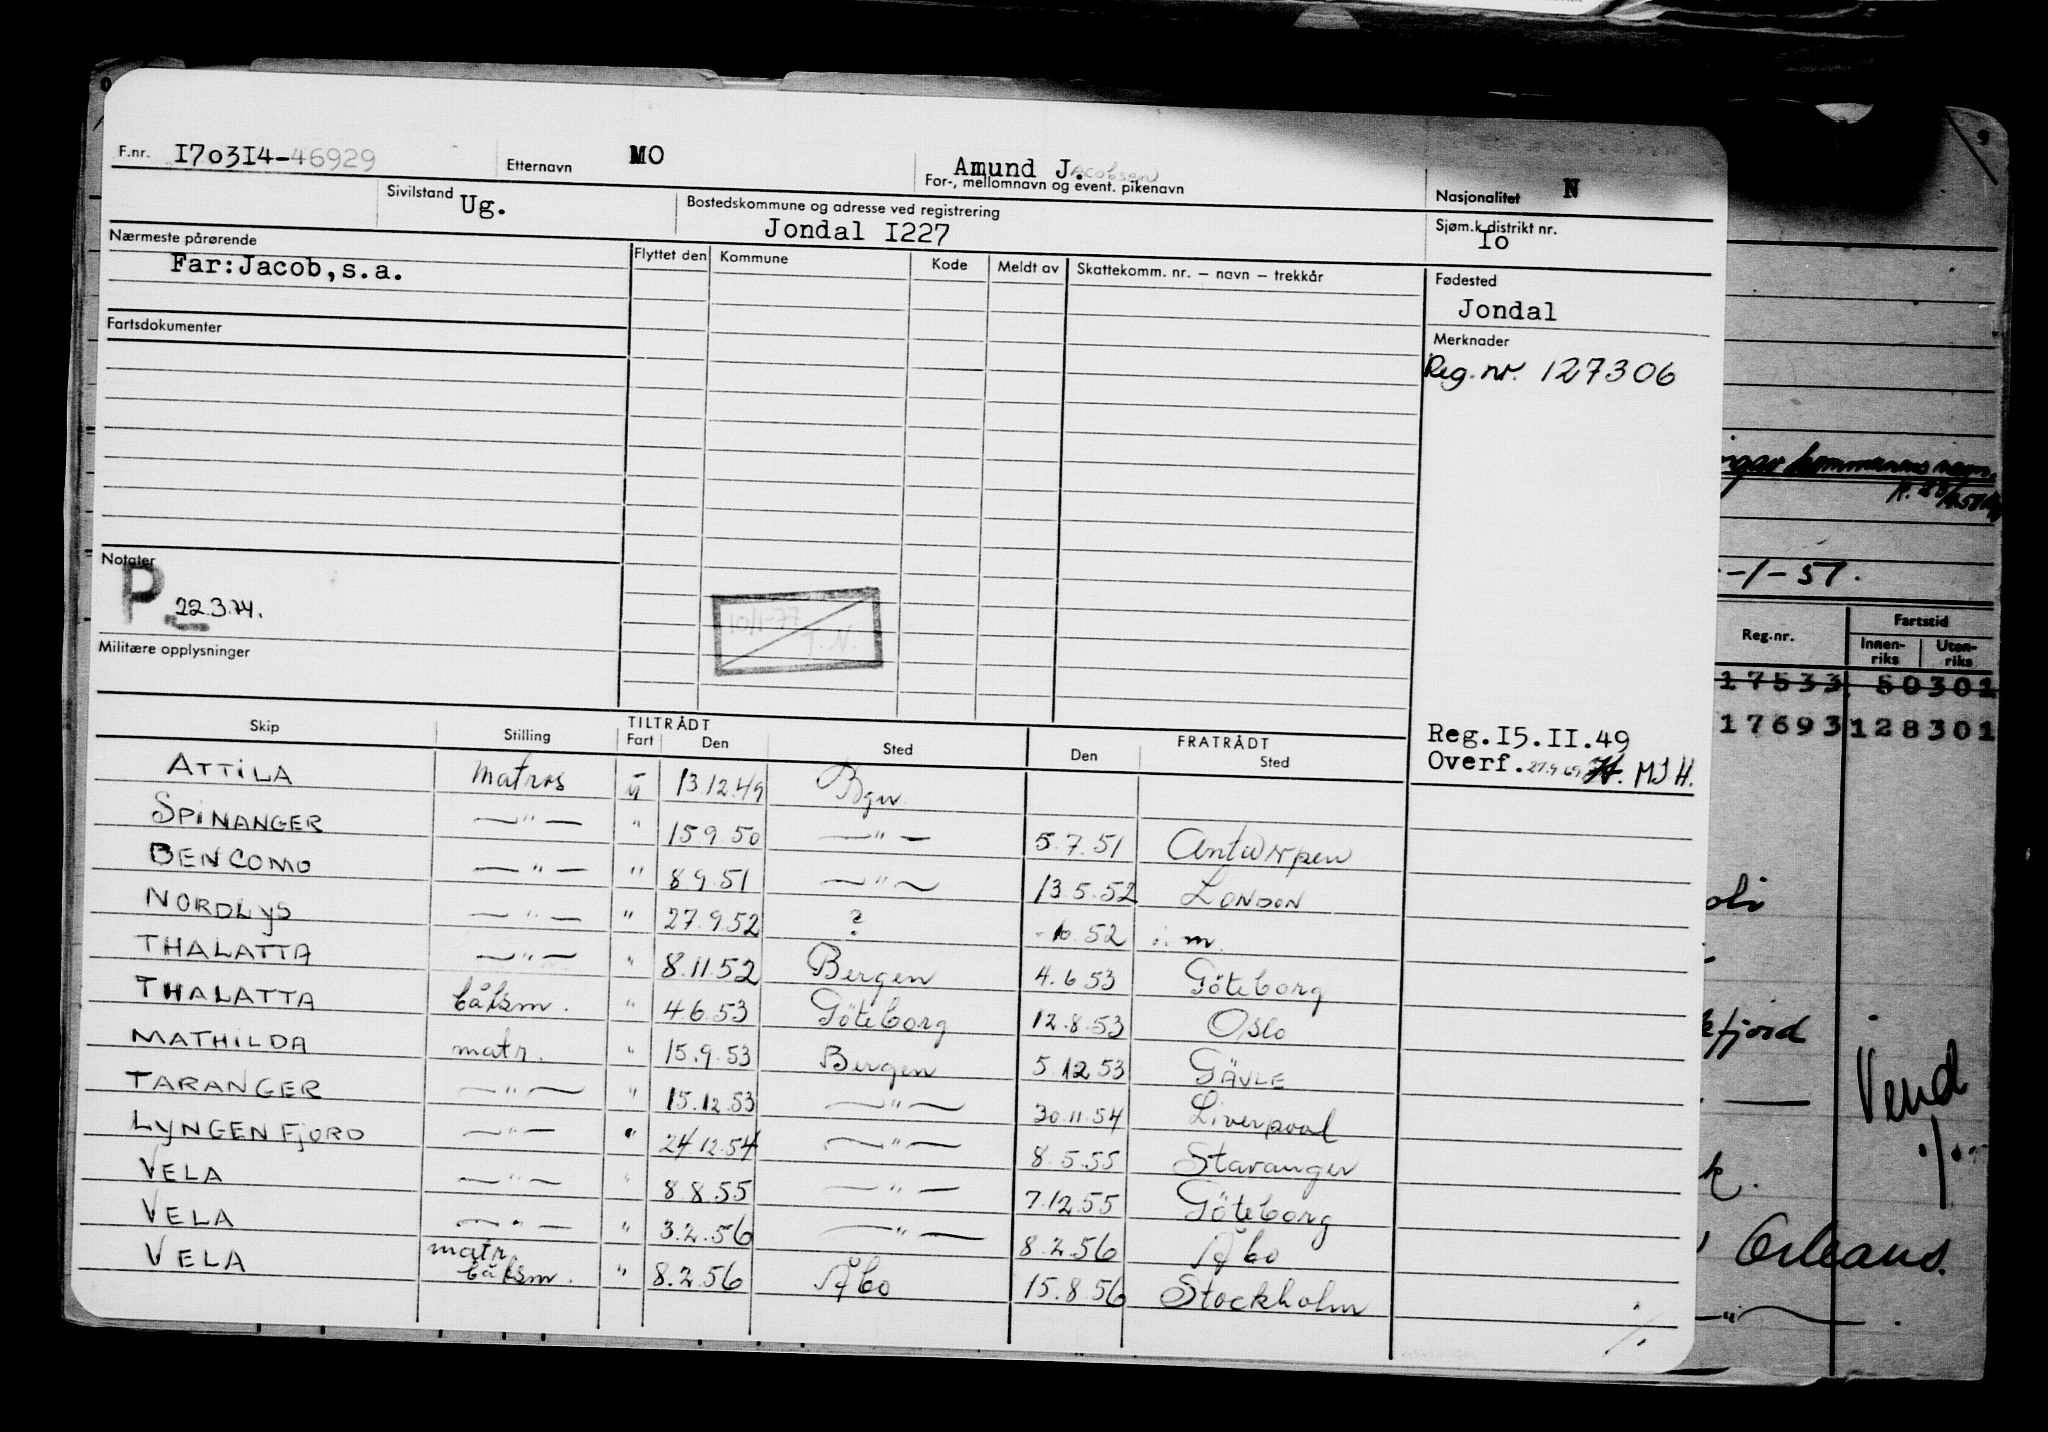 F.nr. I703I4-46929 Etternavn MO Amund J.acobsen For-, mellomnavn og event. pikenavn Nasjonalitet N
Sivilstand Ug. Bostedskommune og adresse ved registrering Jondal I227 Sjøm.k.distrikt nr. Io
Nærmeste pårørende Flyttet den Kommune Kode Meldt av Skattekomm. nr. – navn – trekkår Fødested
Far:Jacob,s.a. Jondal
Fartsdokumenter Merknader
Reg. nr. 127306
Notater
P 22.3.74.
10/1-77
T.N.
Militære opplysninger
TILTRÅDT FRATRÅDT
Skip Stilling Fart Den Sted Den Sted
Reg.I5.II.49
Overf. 27.9 69 MJH.
ATTILA matros u 13.12.49 Bgn.
SPINANGER —"— " 15 9.50 —"— 5.7.51 Antwerpen
BENCOMO —"— " 8 9.51 —"— 13.5.52 LONDON
NORDLYS —"— " 27.9.52 ? -10.52 i. m.
THALATTA —"— " 8.11.52 Bergen 4.6 53 Göteborg
THALATTA båtsm. " 4.6.53 Göteborg 12.8.53 Oslo
MATHILDA matr. " 15.9.53 Bergen 5.12 53 GÄVLE
TARANGER —"— " 15.12.53 —"— 30.11.54 Liverpool
LYNGENFJORD —"— " 24 12.54 —"— 8.5.55 Stavanger
VELA —"— " 8 8.55 —"— 7.12.55 Göteborg
VELA —"— " 3.2.56 —"— 8.2.56 Åbo
VELA matr. båtsm. " 8.2.56 Åbo 15.8.56 Stockholm
kommunens
-1-57.
Reg.nr. Fartstid
Innen-riks Uten-riks
17533 50301
17693 128301
fjord
Vend
Orleans.